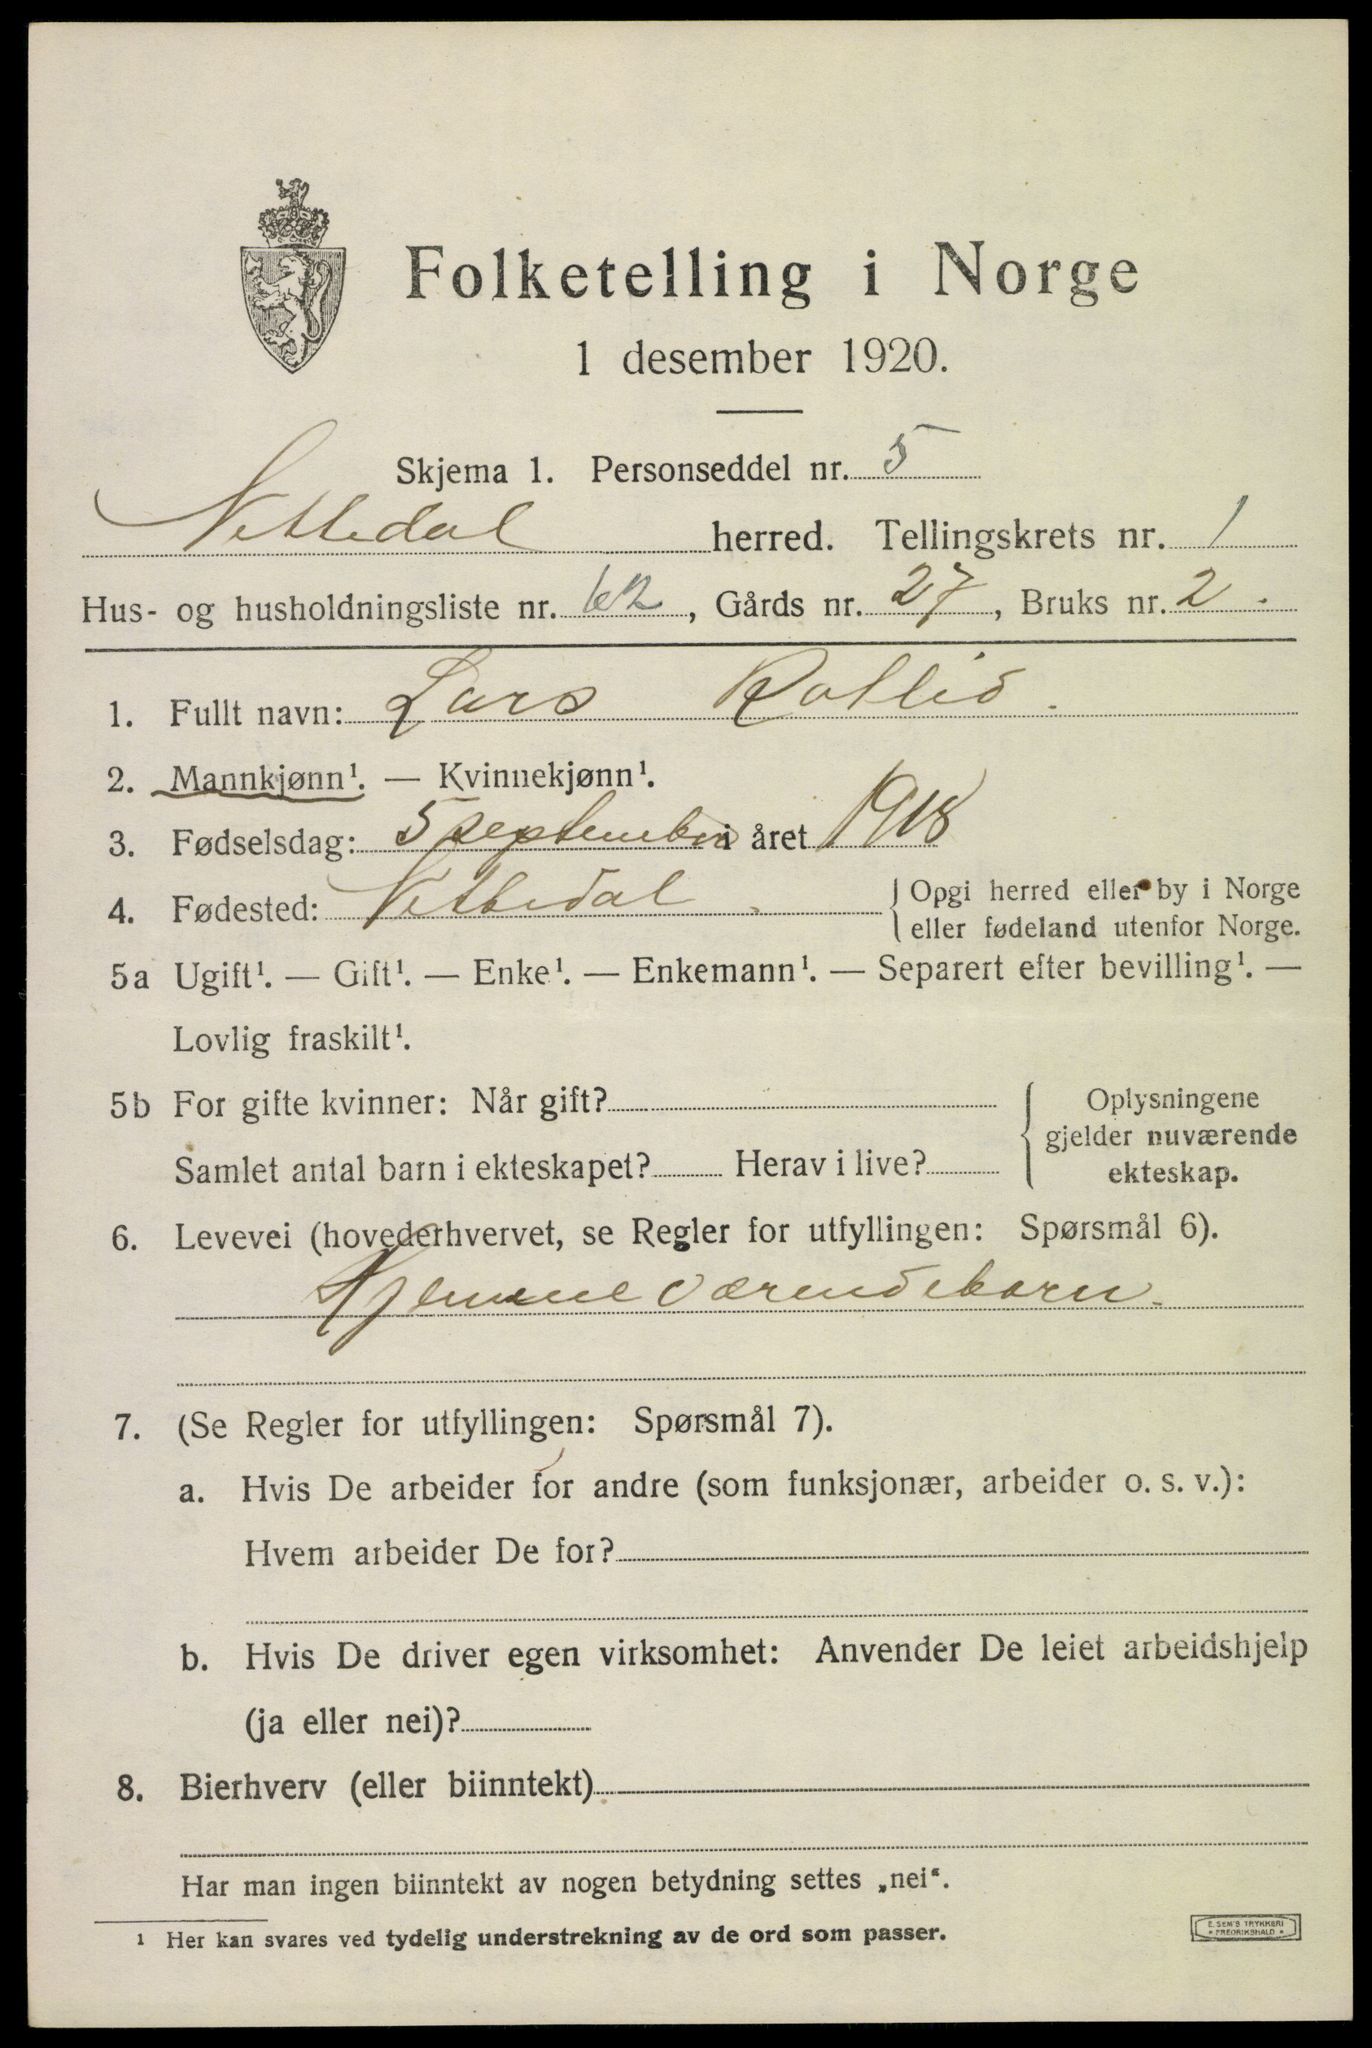 Folketelling i Norge
1 desember 1920.
Skjema 1. Personseddel nr. 5
Nittedal herred. Tellingskrets nr. 1
Hus- og husholdningsliste nr. 62, Gårds nr. 27, Bruks nr. 2.
1. Fullt navn: Lars Rotlid.
2. Mannkjønn¹. — Kvinnekjønn¹.
3. Fødselsdag: 5 september i året 1918
4. Fødested: Nittedal. {Opgi herred eller by i Norge
eller fødeland utenfor Norge.
5a Ugift¹. — Gift¹. — Enke¹. — Enkemann¹. — Separert efter bevilling¹. —
Lovlig fraskilt¹.
5b For gifte kvinner: Når gift? {Oplysningene
gjelder nuværende
Samlet antal barn i ekteskapet? Herav i live? ekteskap.
6. Levevei (hovederhvervet, se Regler for utfyllingen: Spørsmål 6).
Hjemmeværendebarn.
7. (Se Regler for utfyllingen: Spørsmål 7).
a. Hvis De arbeider for andre (som funksjonær, arbeider o. s. v.):
Hvem arbeider De for?
b. Hvis De driver egen virksomhet: Anvender De leiet arbeidshjelp
(ja eller nei)?
8. Bierhverv (eller biinntekt)
Har man ingen biinntekt av nogen betydning settes „nei“.
¹ Her kan svares ved tydelig understrekning av de ord som passer.
E. SEM'S TRYKKERI
* FREDRIKSHALD *